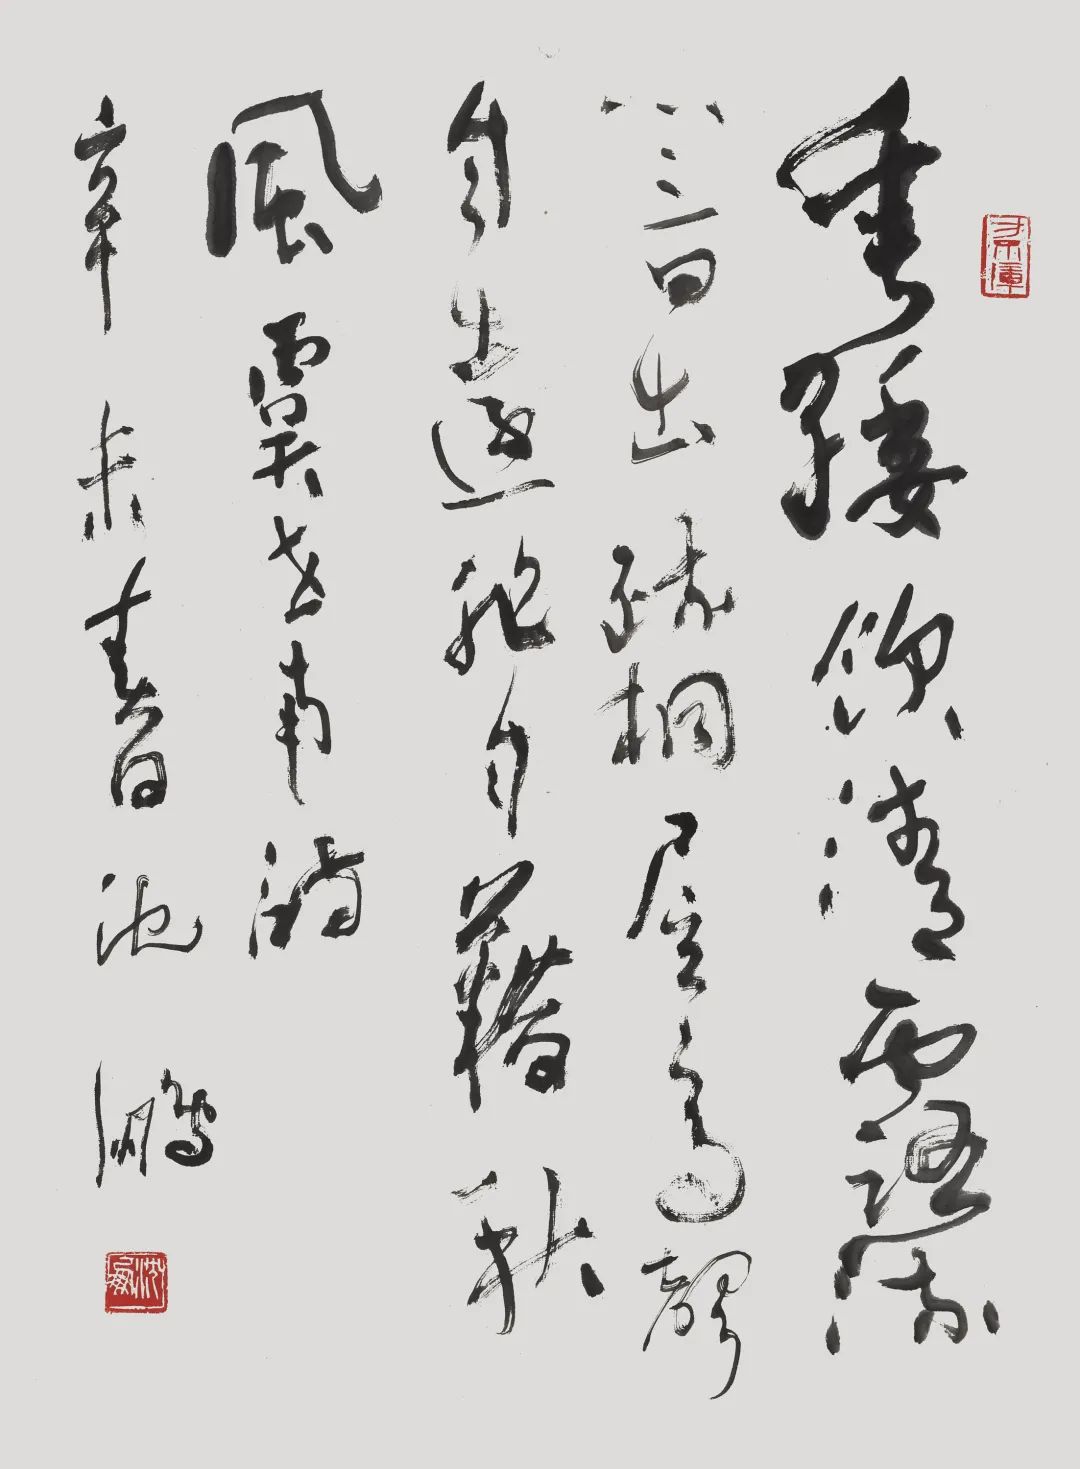 垂緌飲清露流
響出疏桐居高聲
自遠非是藉秋
風 虞世南詩
辛未春日沈鵬